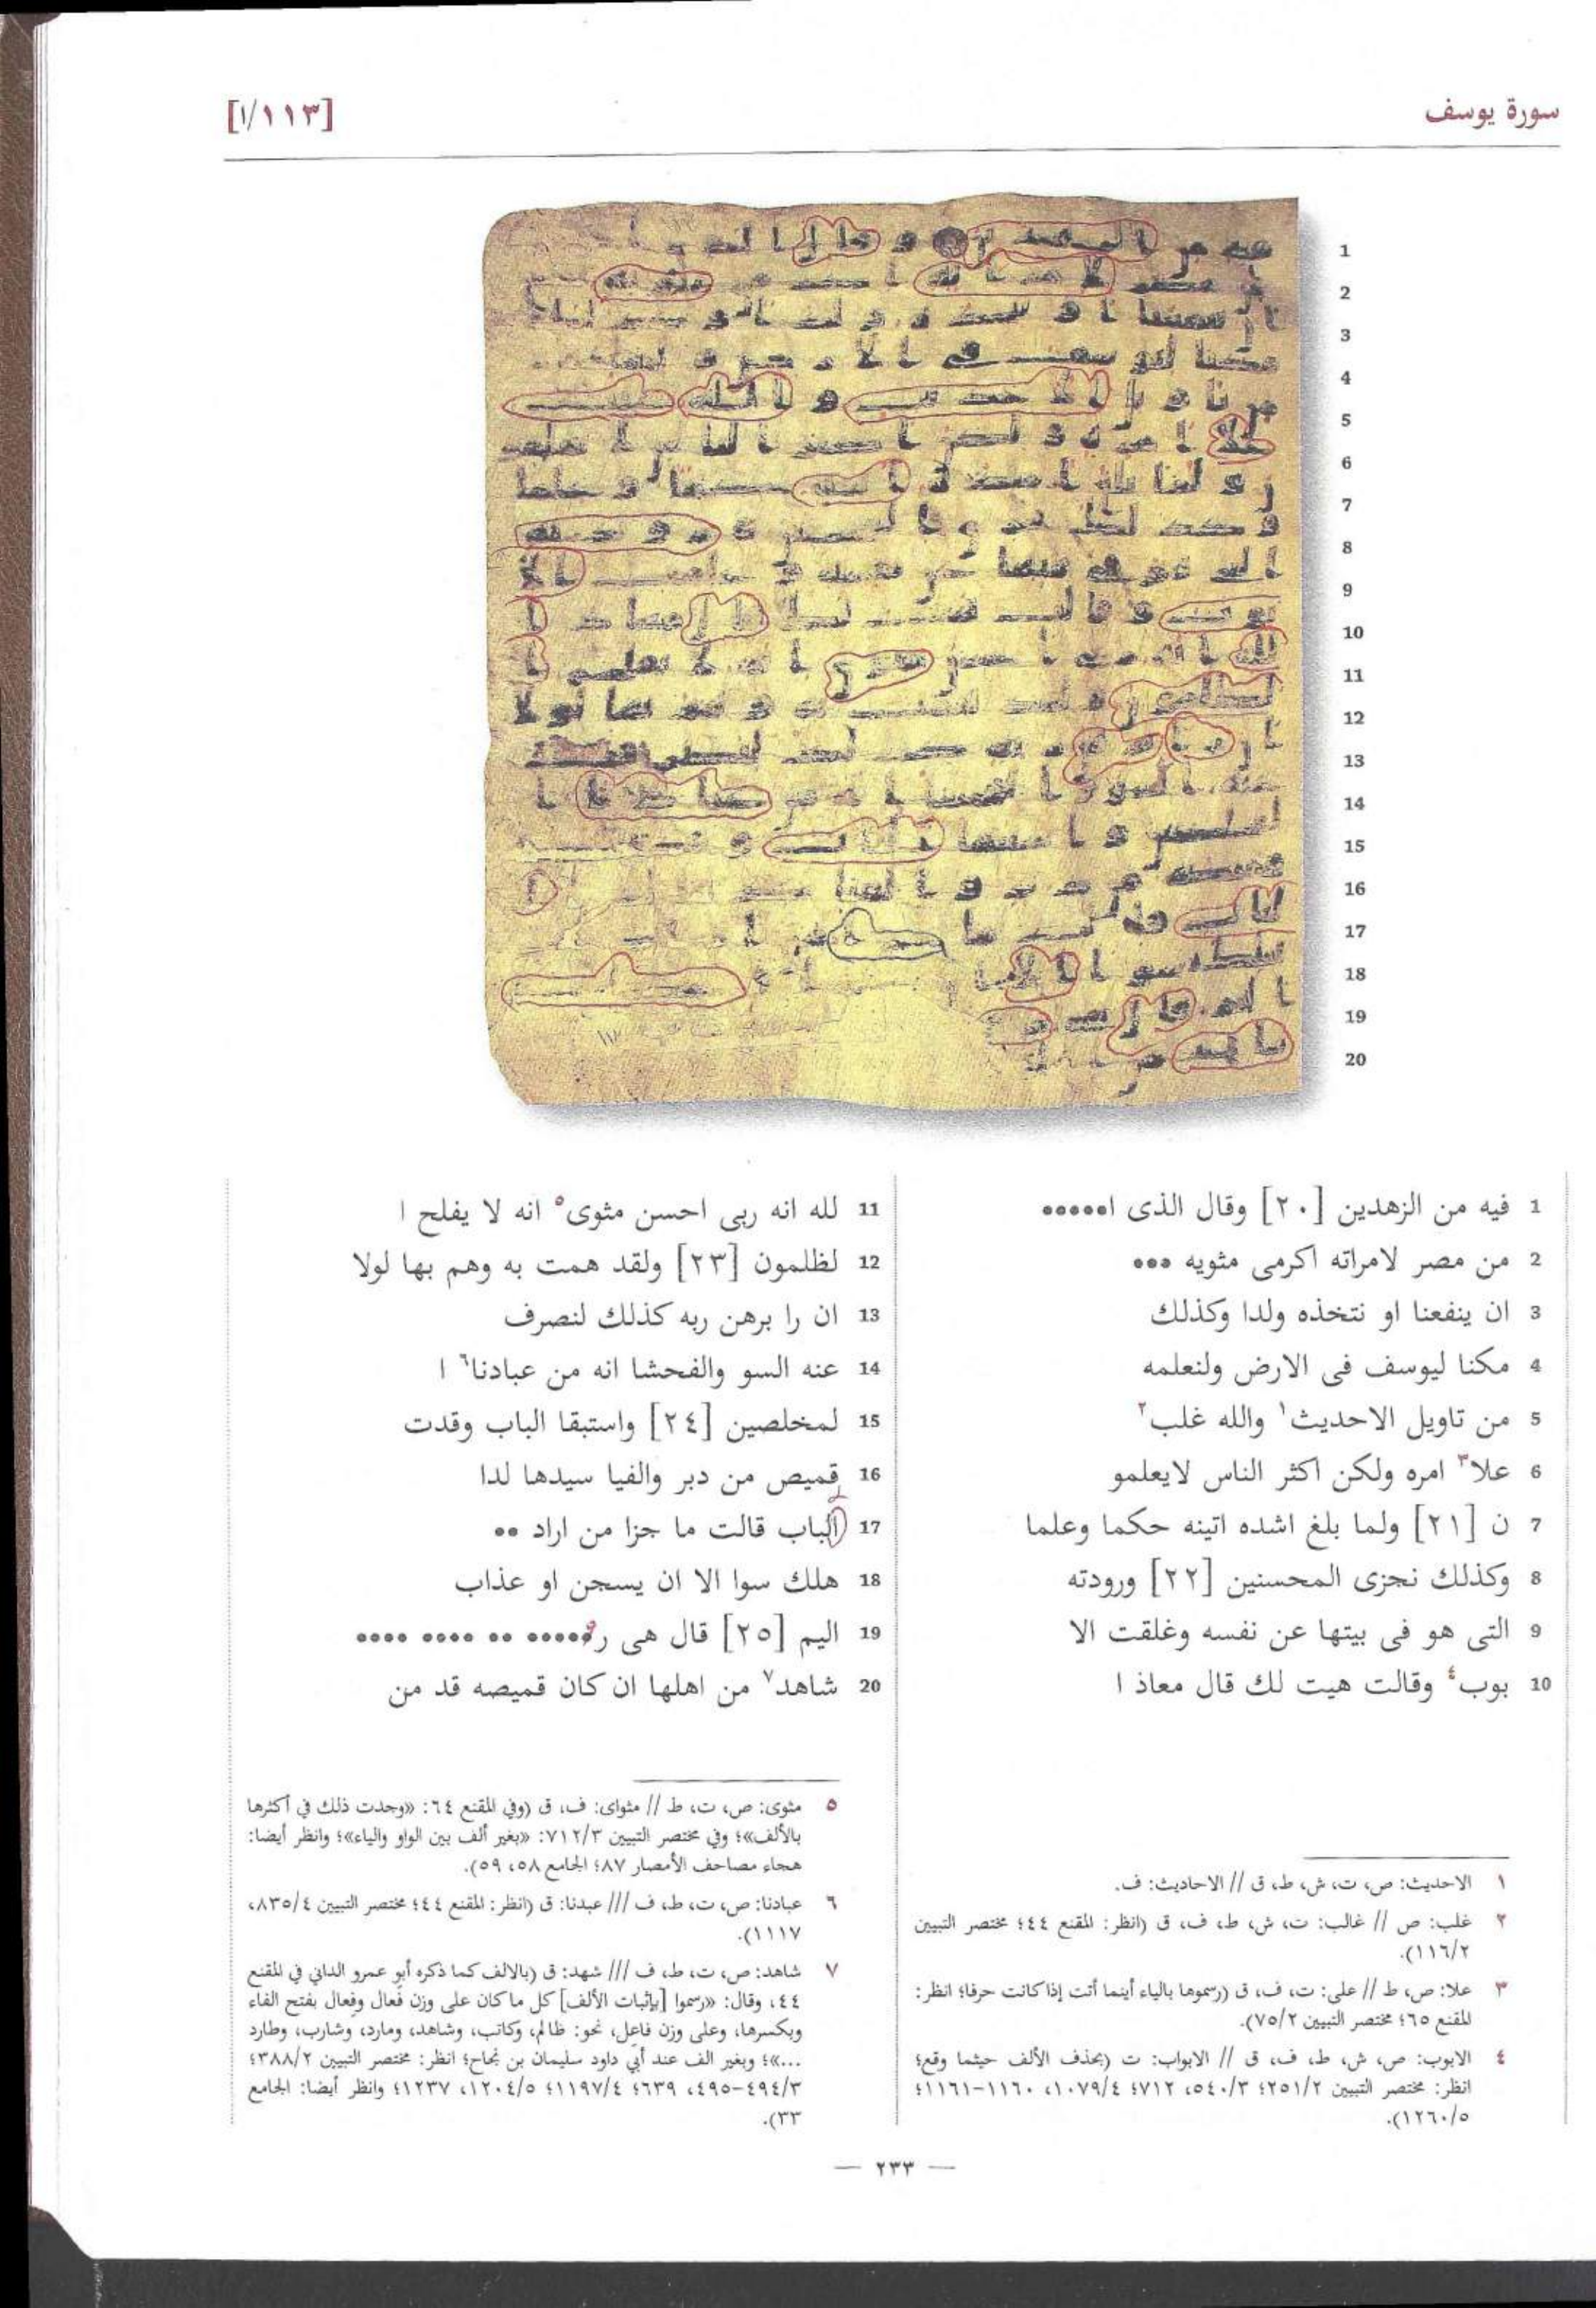 سورة يوسف
[١/١١٣]
1 فيه من الزهدين [٢٠] وقال الذى ا•••••
2 من مصر لامراته اكرمى مثويه •••
3 ان ينفعنا او نتخذه ولدا وكذلك
4 مكنا ليوسف فى الارض ولنعلمه
5 من تاويل الاحديث١ والله غلب٢
6 علا٣ امره ولكن اكثر الناس لايعلمو
7 ن [٢١] ولما بلغ اشده اتينه حكما وعلما
8 وكذلك نجزى المحسنين [٢٢] ورودته
9 التى هو فى بيتها عن نفسه وغلقت الا
10 بوب٤ وقالت هيت لك قال معاذ ا
11 لله انه ربى احسن مثوى٥ انه لا يفلح ا
12 لظلمون [٢٣] ولقد همت به وهم بها لولا
13 ان را برهن ربه كذلك لنصرف
14 عنه السو والفحشا انه من عبادنا٦ ا
15 لمخلصين [٢٤] واستبقا الباب وقدت
16 قميص من دبر والفيا سيدها لدا
17 الباب قالت ما جزا من اراد ••
18 هلك سوا الا ان يسجن او عذاب
19 اليم [٢٥] قال هى ر••••• •• •••• ••••
20 شاهد٧ من اهلها ان كان قميصه قد من
١ الاحديث: ص، ت، ش، ط، ق // الاحاديث: ف.
٢ غلب: ص // غالب: ت، ش، ط، ف، ق (انظر: المقنع ٤٤؛ مختصر التبيين
١١٦/٢).
٣ علا: ص، ط // على: ت، ف، ق (رسموها بالياء أينما أتت إذا كانت حرفا؛ انظر:
المقنع ٦٥؛ مختصر التبيين ٧٥/٢).
٤ الابوب: ص، ش، ط، ف، ق // الابواب: ت (بحذف الألف حيثما وقع؛
انظر: مختصر التبيين ٢٥١/٢؛ ٥٤٠/٣، ٧١٢؛ ١٠٧٩/٤، ١١٦٠-١١٦١؛
١٢٦٠/٥).
٥ مثوى: ص، ت، ط // مثواى: ف، ق (وفي المقنع ٦٤: «وجدت ذلك في أكثرها
بالألف»؛ وفي مختصر التبيين ٧١٢/٣: «بغير ألف بين الواو والياء»؛ وانظر أيضا:
هجاء مصاحف الأمصار ٨٧؛ الجامع ٥٨، ٥٩).
٦ عبادنا: ص، ت، ط، ف /// عبدنا: ق (انظر: المقنع ٤٤؛ مختصر التبيين ٨٣٥/٤،
١١١٧).
٧ شاهد: ص، ت، ط، ف /// شهد: ق (بالالف كما ذكره أبو عمرو الداني في المقنع
٤٤، وقال: «رسموا [بإثبات الألف] كل ما كان على وزن فَعال وفِعال بفتح الفاء
وبكسرها، وعلى وزن فاعل، نحو: ظالم، وكاتب، وشاهد، ومارد، وشارب، وطارد
...»؛ وبغير الف عند أبي داود سليمان بن نجاح؛ انظر: مختصر التبيين ٣٨٨/٢؛
٤٩٤/٣-٤٩٥، ٦٣٩؛ ١١٩٧/٤؛ ١٢٠٤/٥، ١٢٣٧؛ وانظر أيضا: الجامع
٣٣).
— ٢٣٣ —